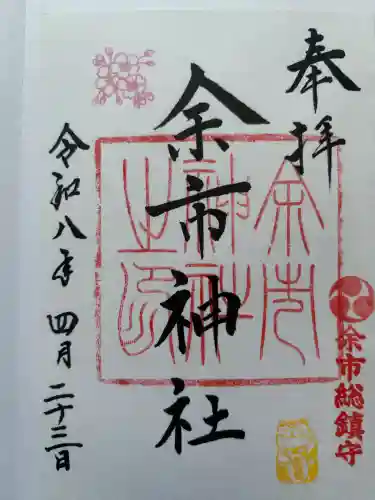 奉拝
余市神社
余市神社之印
余市総鎮守
令和八年 四月二十三日